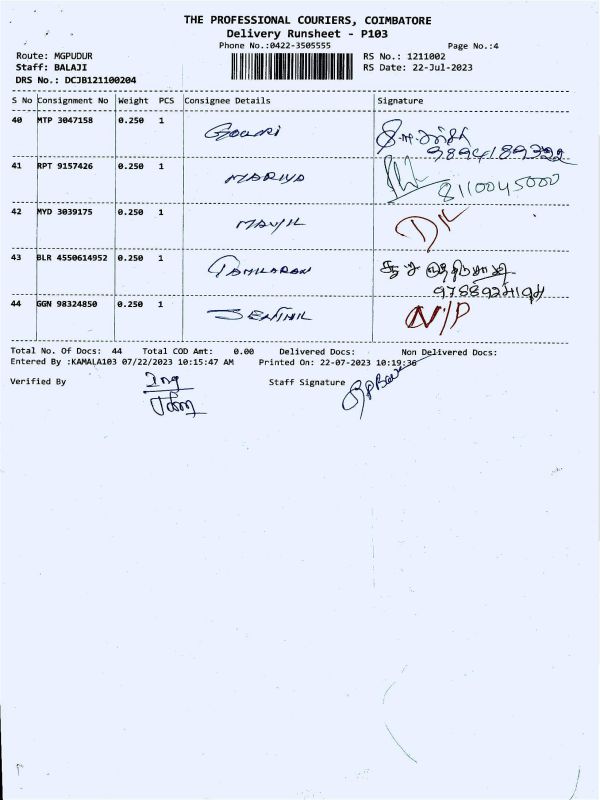 THE PROFESSIONAL COURIERS, COIMBATORE
Delivery Runsheet - P103
Phone No.:0422-3505555 Page No.:4
Route: MGPUDUR RS No.: 1211002
Staff: BALAJI RS Date: 22-Jul-2023
DRS No.: DCJB121100204
S No Consignment No Weight PCS Consignee Details Signature
40 MTP 3047158 0.250 1 GOWRI
41 RPT 9157426 0.250 1 MARIYA 8110045000
42 MYD 3039175 0.250 1
43 BLR 4550614952 0.250 1
44 GGN 98324850 0.250 1 SENTHIL N/P
Total No. Of Docs: 44 Total COD Amt: 0.00 Delivered Docs: Non Delivered Docs:
Entered By :KAMALA103 07/22/2023 10:15:47 AM Printed On: 22-07-2023 10:19:36
Verified By Staff Signature